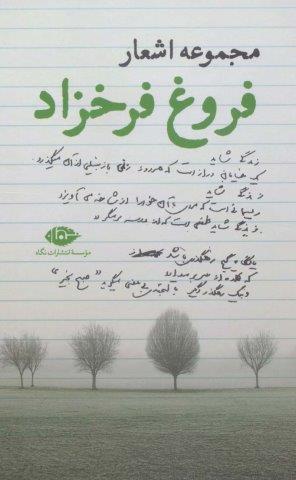 مجموعه اشعار
فروغ فرخزاد
زندگی شاید
یک خیابان دراز است که هر روز زنی با زنبیلی از آن میگذرد
زندگی شاید
ریسمانی است که مردی با آن خود را از شاخه می آویزد
زندگی شاید طفلی است که از مدرسه بر میگردد
یا نگاه گیج رهگذری باشد
که کلاه از سر بر میدارد
و به یک رهگذر دیگر با لبخندی بی معنی میگوید "صبح بخیر"
مؤسسهٔ انتشارات نگاه